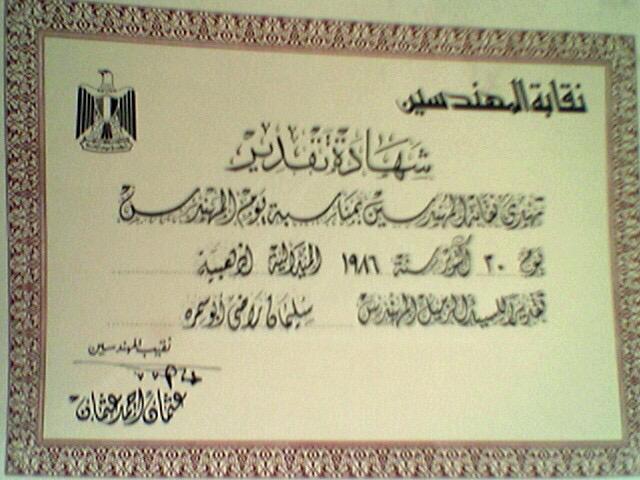 نقابة المهندسين
شهادة تقدير
تهدى نقابة المهندسين بمناسبة يوم المهندس
يوم ٢٠ أكتوبر سنة ١٩٨٦ الميدالية الذهبية
تقديرا للسيد الزميل المهندس سليمان راضى أبو سمره
نقيب المهندسين
عثمان أحمد عثمان